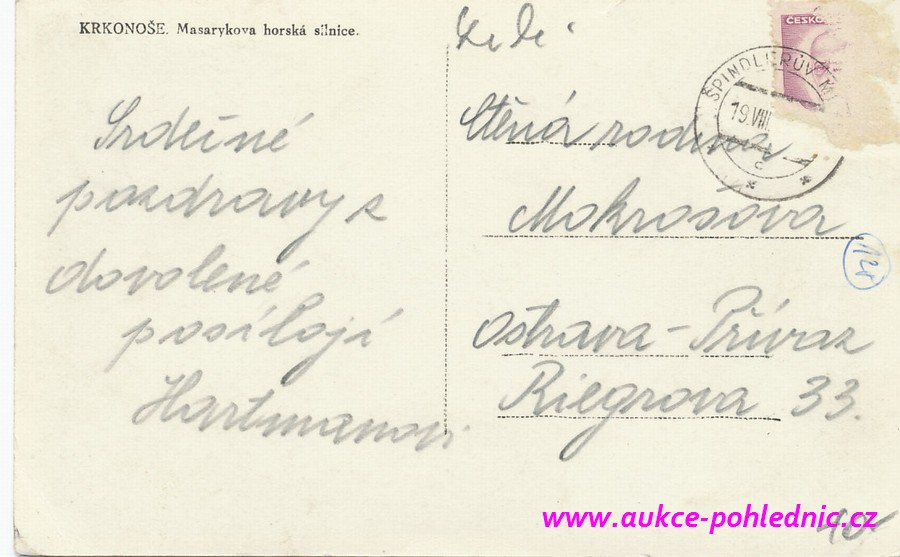 KRKONOŠE. Masarykova horská silnice.
Srdečné
pozdravy z
dovolené
posílají
Hartmanovi
ČESKO
ŠPINDLERŮV
19.VIII
c
Ctěná rodina
Mokrošova
Ostrava-Přívoz
Riegrova 33.
125
40
www.aukce-pohlednic.cz